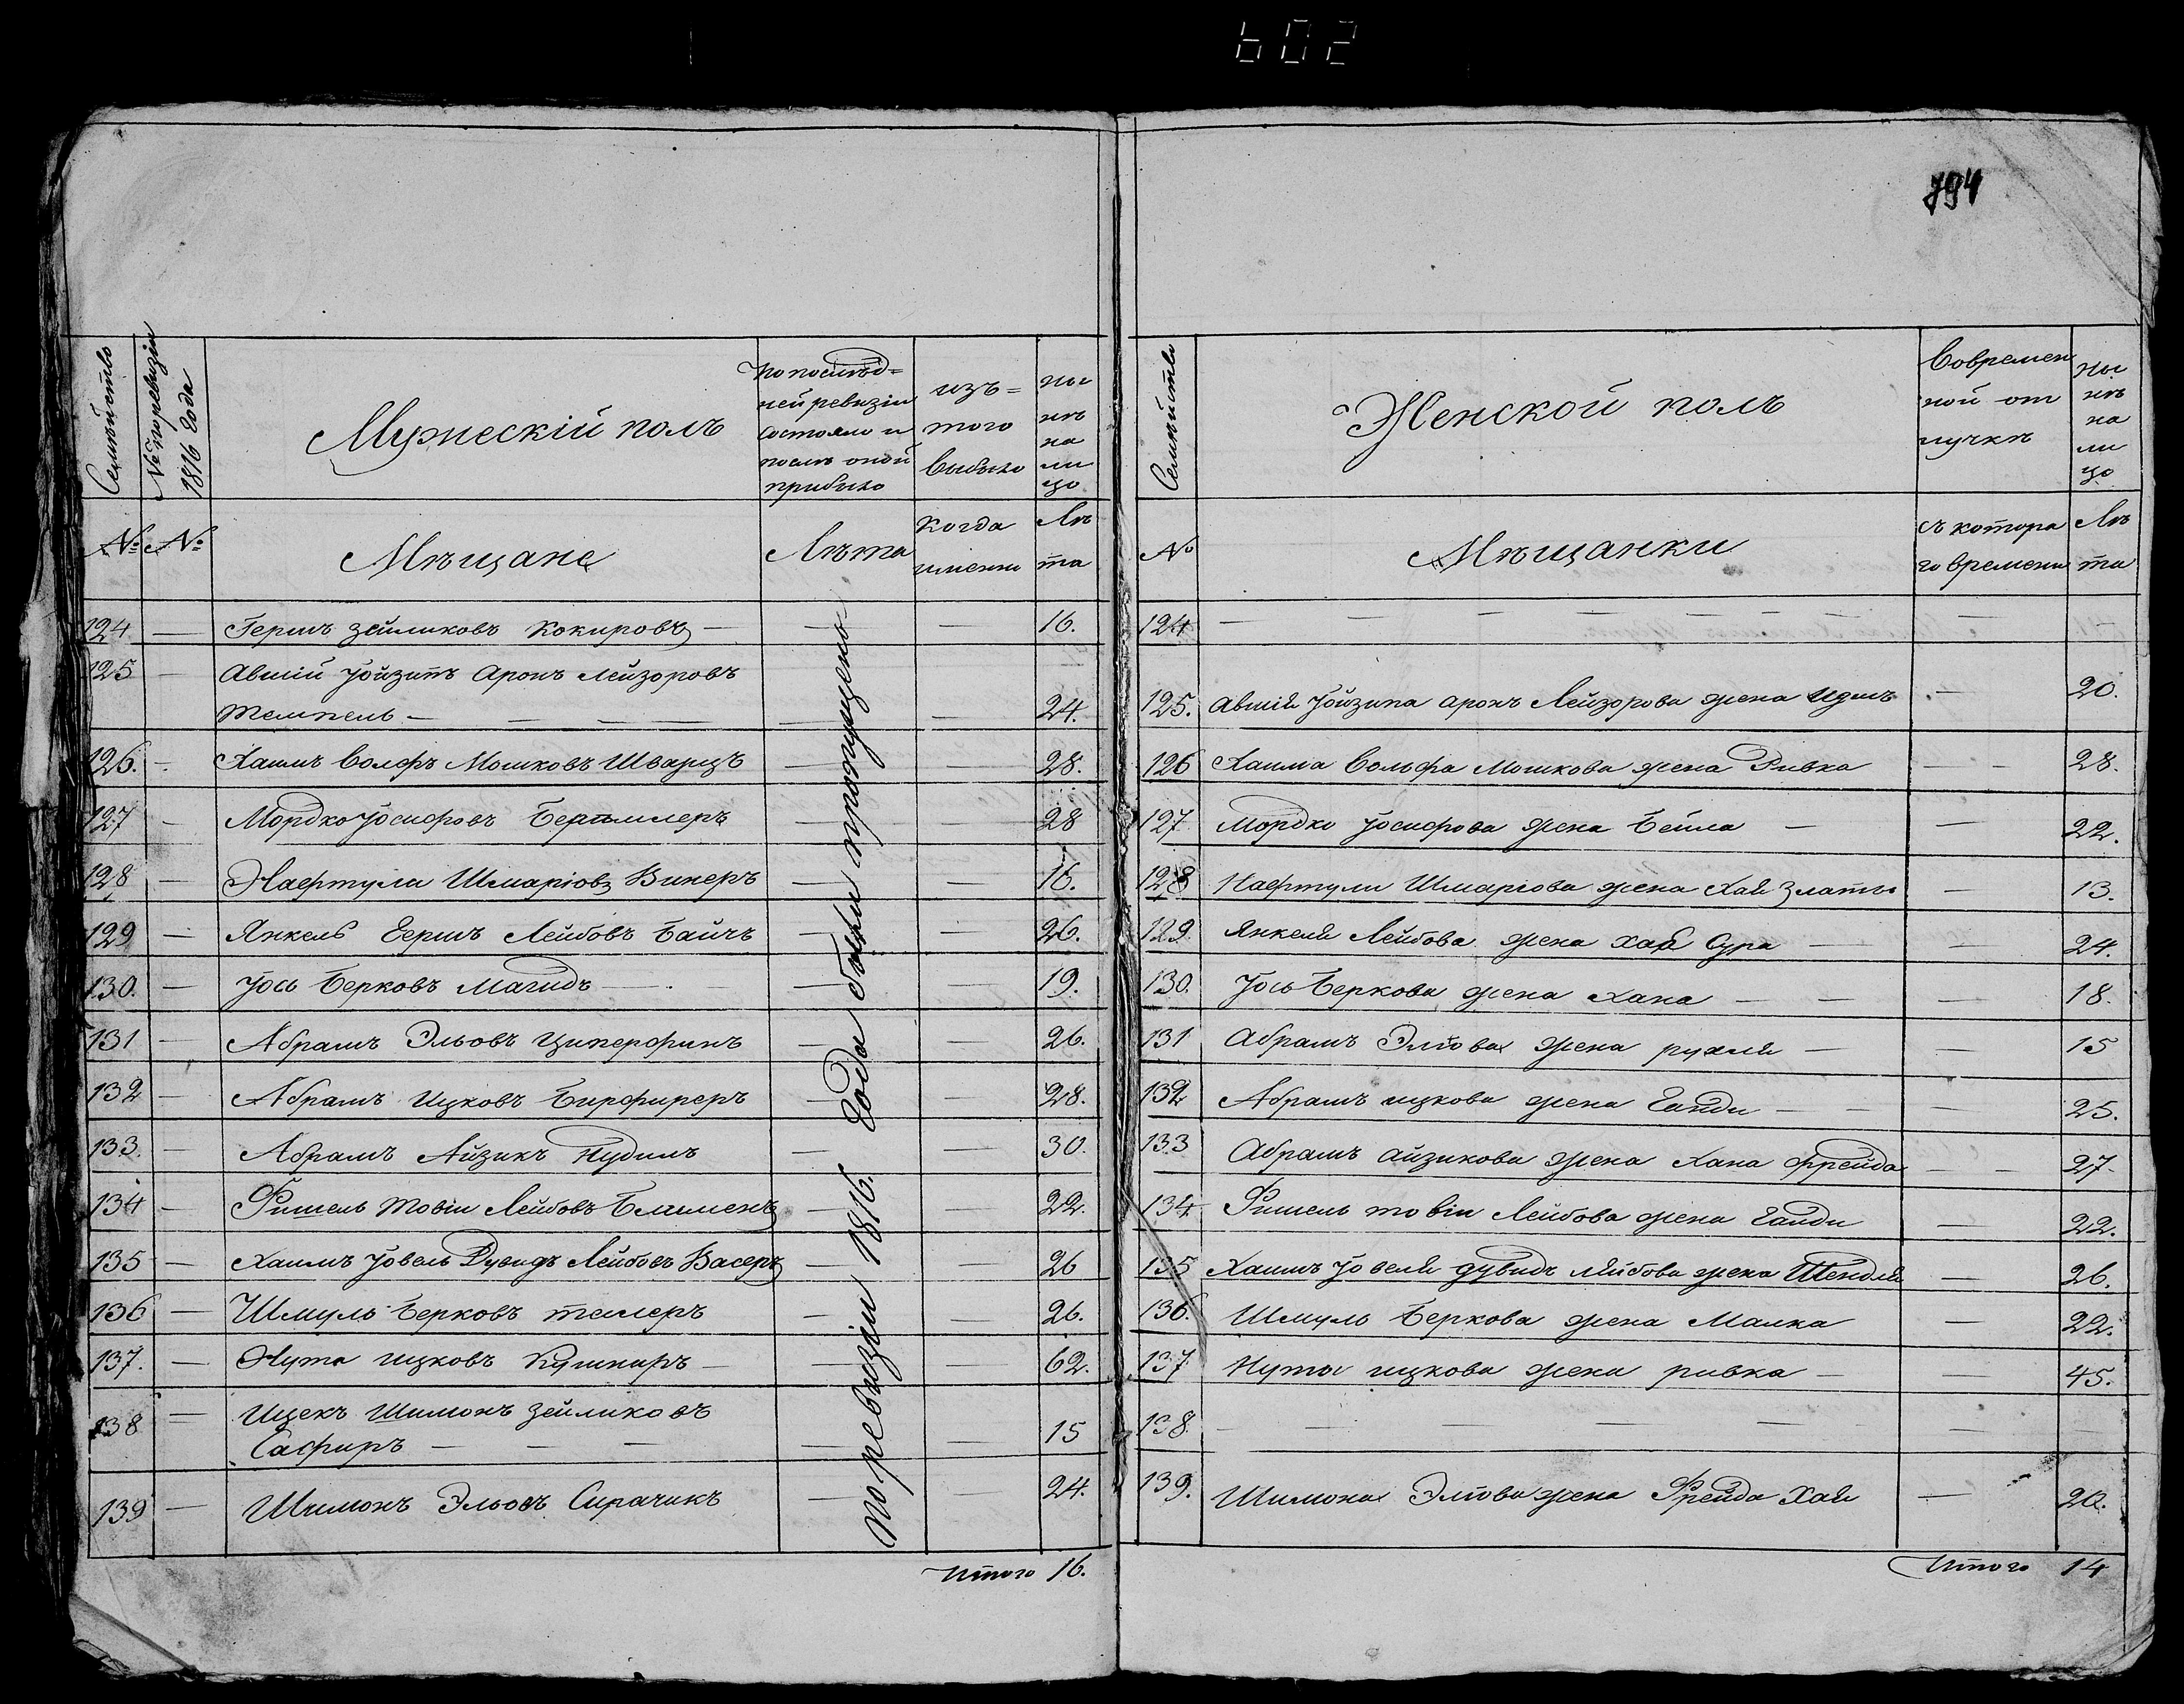 602
794
Семейство
№ по ревизіи
1816 года
Мужескій полъ
По послѣд=
ней ревизіи
состояло и
послѣ оной
прибыло
изъ=
того
выбыло
ны
нѣ
на
ли
цо
№
№
Мѣщане
Лѣта
когда
именно
Лѣ
та
124 — Гершъ Зейликовъ Кокировъ — — — 16.
125 — Авшій Іойзипъ Аронъ Лейзоровъ
Темпель — — — — — — 24.
126. — Хаимъ Волфъ Мошковъ Шварцъ — — 28.
127 — Мордко Іосифовъ — — 28
128 — Нафтули Шмаріовъ Винеръ — — 16.
129 — Янкель Гершъ Лейбовъ Байчъ — — 26.
130. — Іось Берковъ Магидъ — — — 19.
131 — Абрамъ Эльовъ Циперфинъ — — 26.
132 — Абрамъ Ицковъ Бирфиреръ — — 28.
133. — Абрамъ Айзикъ Нудимъ — — 30.
134 — Фишель Товіи Лейбовъ — — 22.
135 — Хаимъ Іовель Дувидъ Лейбовъ Васеръ — — 26
136 — Шмуль Берковъ телеръ — — 26.
137. — Нута Ицковъ Кушниръ — — — 62.
138 — Ицекъ Шимонъ Зейликовъ
Сафиръ — — — — — 15
139 — Шимонъ Эльовъ Сирачикъ — — 24.
По ревизіи 1816. года были пропущены
Итого 16.
Семейство
Женской полъ
Во времен
ной от
лучкѣ
ны
нѣ
на
ли
цо
№
Мѣщанки
съ котора
го времени
Лѣ
та
124 — — — — — — — —
125. Авшія Іойзипа Аронъ Лейзорова жена Идесъ — 20.
126 Хаима Вольфа Мошкова жена Ривка — — 28.
127 Мордко Іосифова жена Бейла — — 22.
128 Нафтули Шмаріова жена Хая Злата — 13.
129. Янкеля Лейбова жена Хая Сура — — 24.
130. Іось Беркова жена Хана — — — 18.
131 Абрамъ Эліова жена рухля — — 15
132 Абрамъ ицкова жена Ганди — — — 25.
133 Абрамъ айзикова жена Хана фрейда — — 27
134 Фишель товіи Лейбова жена Ганди — 22.
135 Хаимъ Іовеля дувидъ лейбова жена Шендля — 26.
136. Шмуль Беркова жена Малка — 22.
137 Нуты ицкова жена ривка — — 45.
138. — — — — — —
139. Шимона Эліова жена Фрейда Хая — 20.
Итого 14